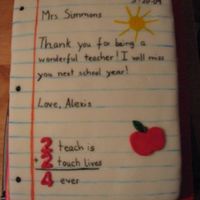 Mrs Simmons
Thank you for being a
wonderful teacher! I will miss
you next school year!
Love, Alexis
2 teach is
+ 2 touch lives
4 ever